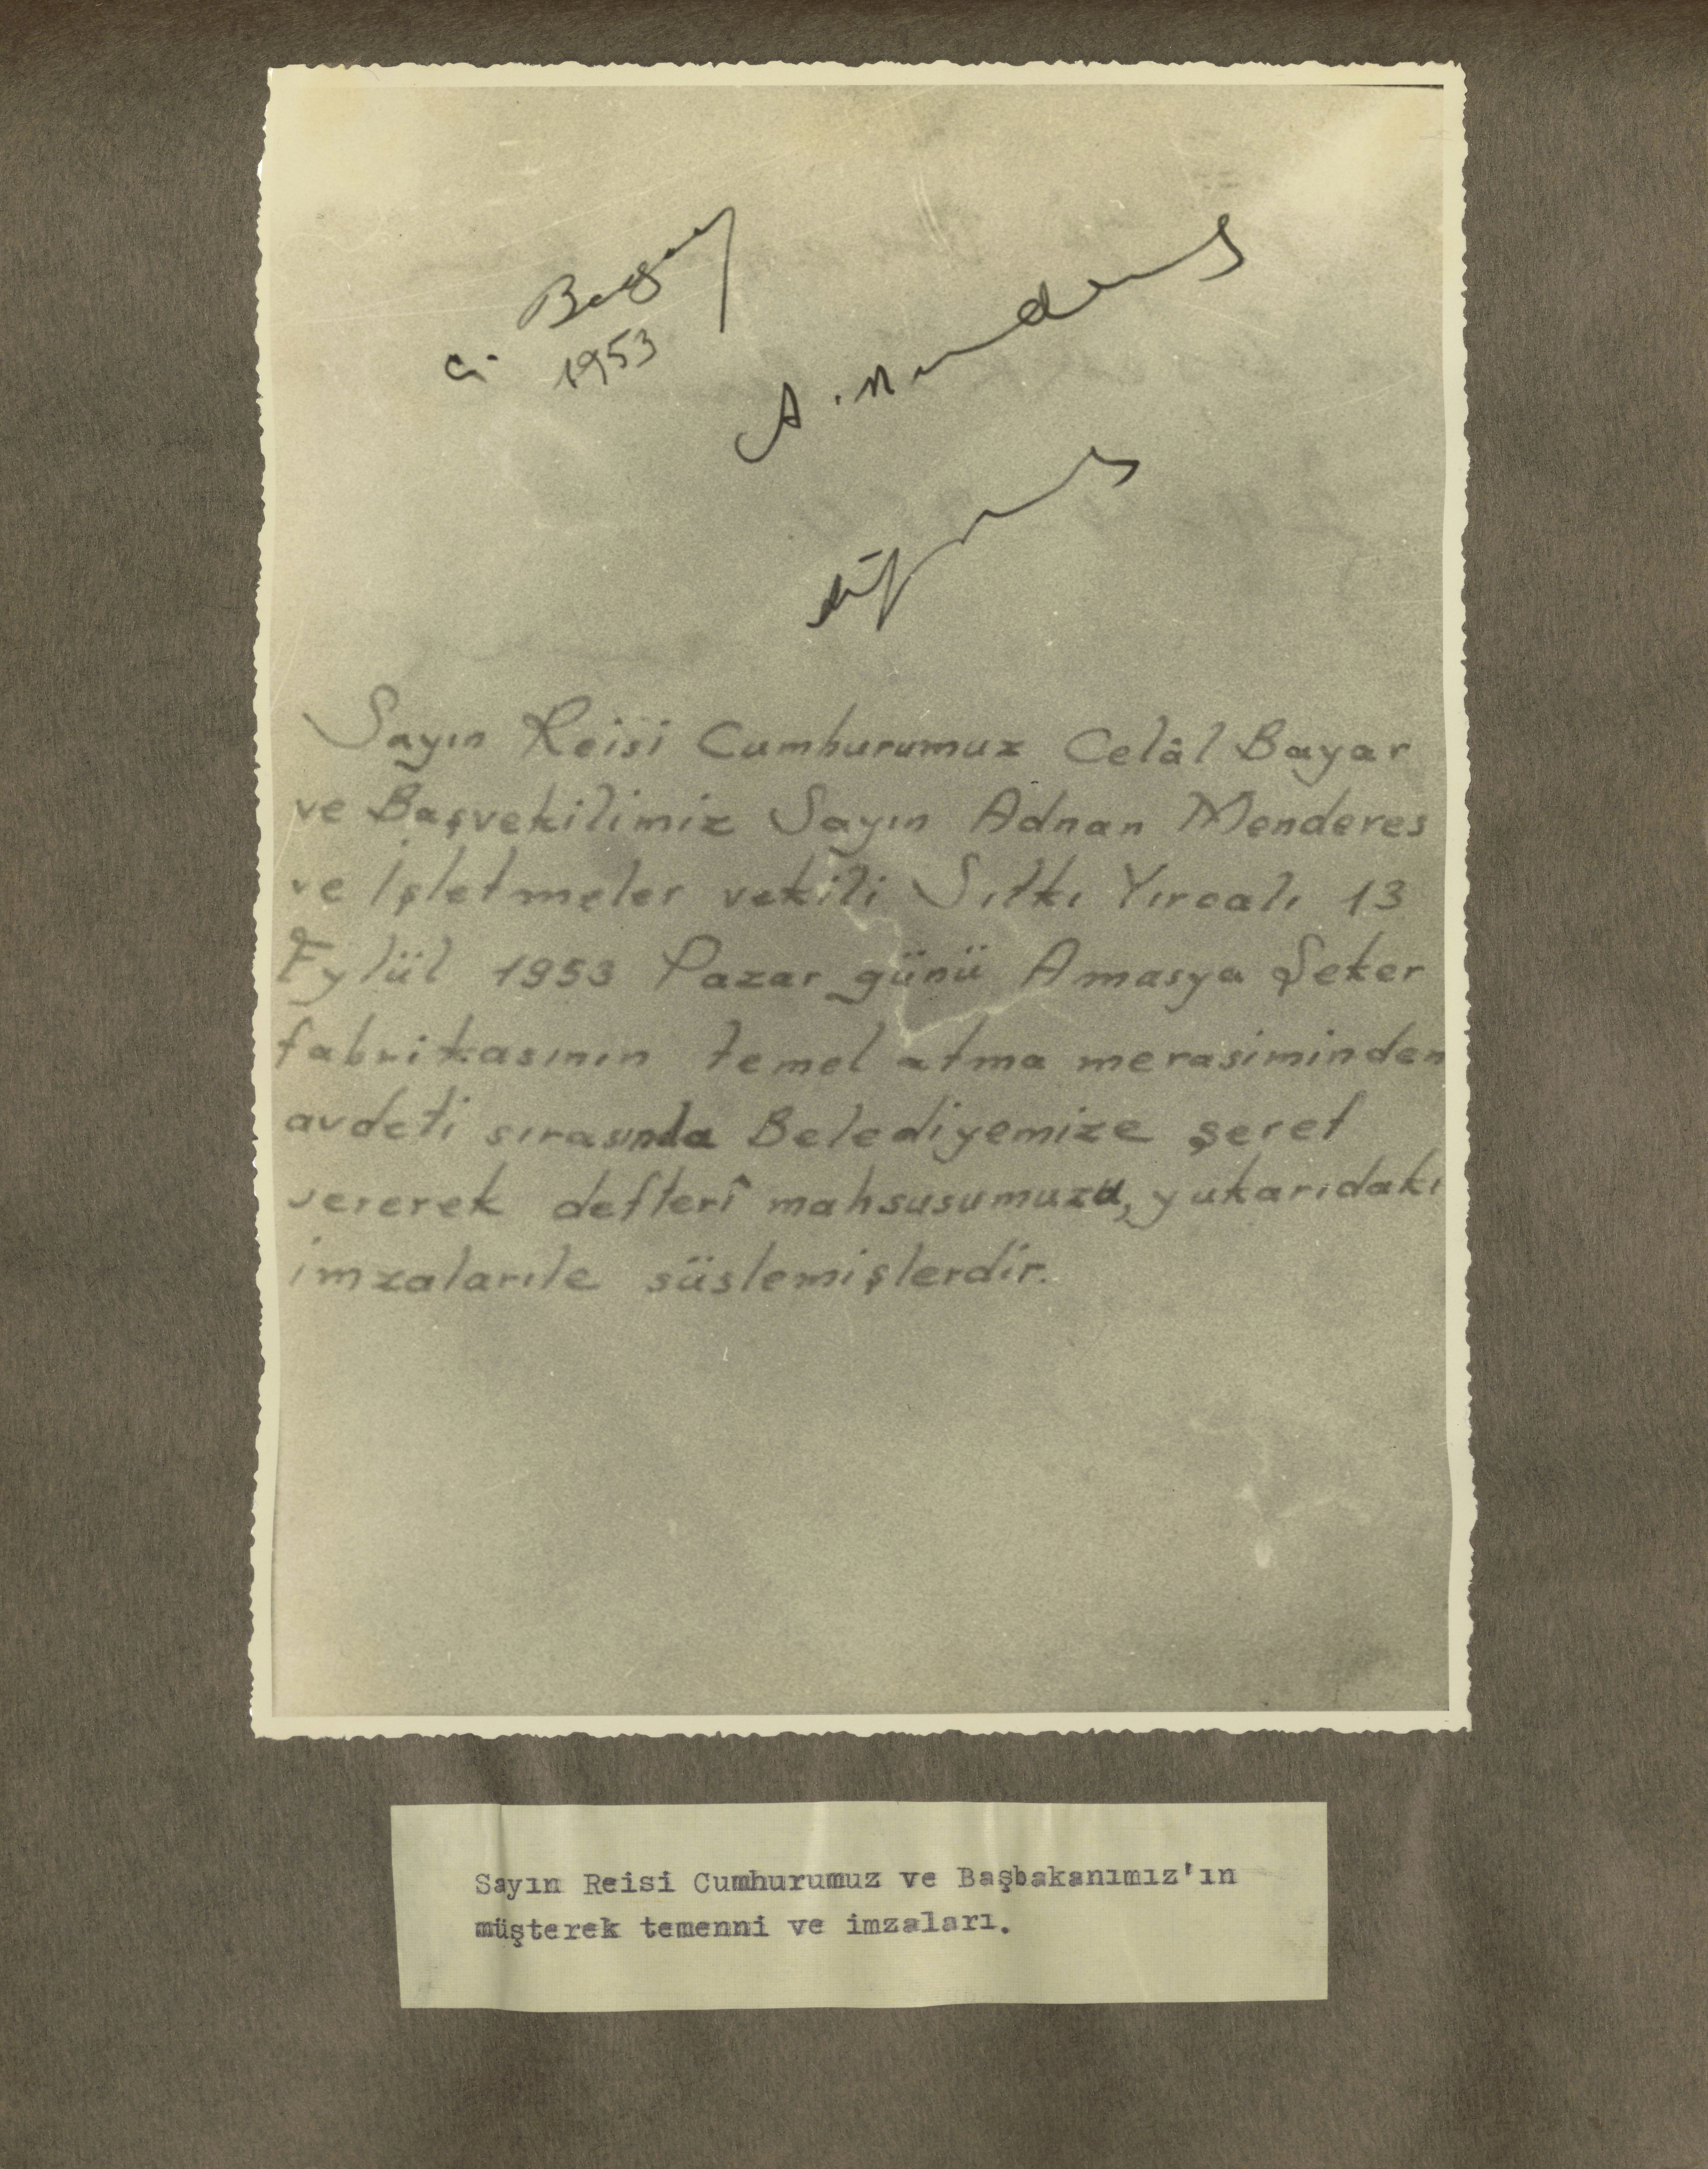 C. Bayar
1953
A. Menderes
Sayın Reisi Cumhurumuz Celâl Bayar
ve Başvekilimiz Sayın Adnan Menderes
ve İşletmeler vekili Sıtkı Yırcalı 13
Eylül 1953 Pazar günü Amasya Şeker
fabrikasının temel atma merasiminden
avdeti sırasında Belediyemize şeref
vererek defterî mahsusumuzu, yukarıdaki
imzalarıle süslemişlerdir.
Sayın Reisi Cumhurumuz ve Başbakanımız'ın
müşterek temenni ve imzaları.